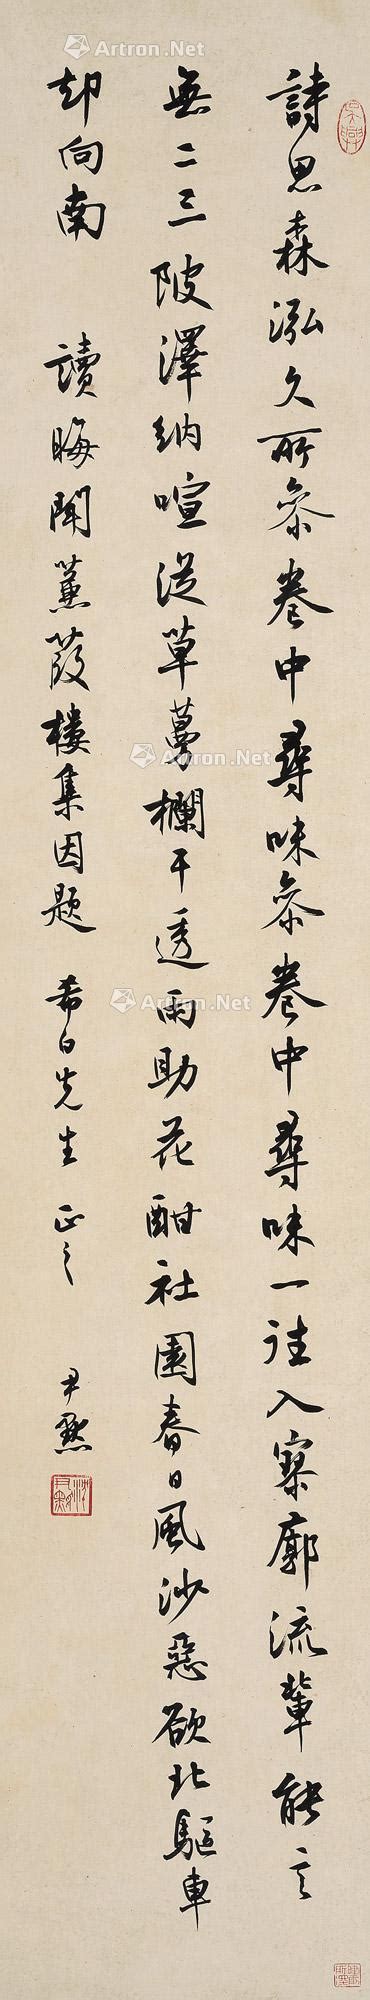 詩思森泓久所叅卷中尋味叅卷中尋味一往入寥廓流輩能言
無二三陂澤納喧從草蔓欄干透雨助花酣社園春日風沙惡欲北驅車
却向南 讀晦聞蒹葭樓集因題 希白先生正之 尹默
沈尹默
Artron.Net
Artron.Net
Artron.Net
Artron.Net
Artron.Net